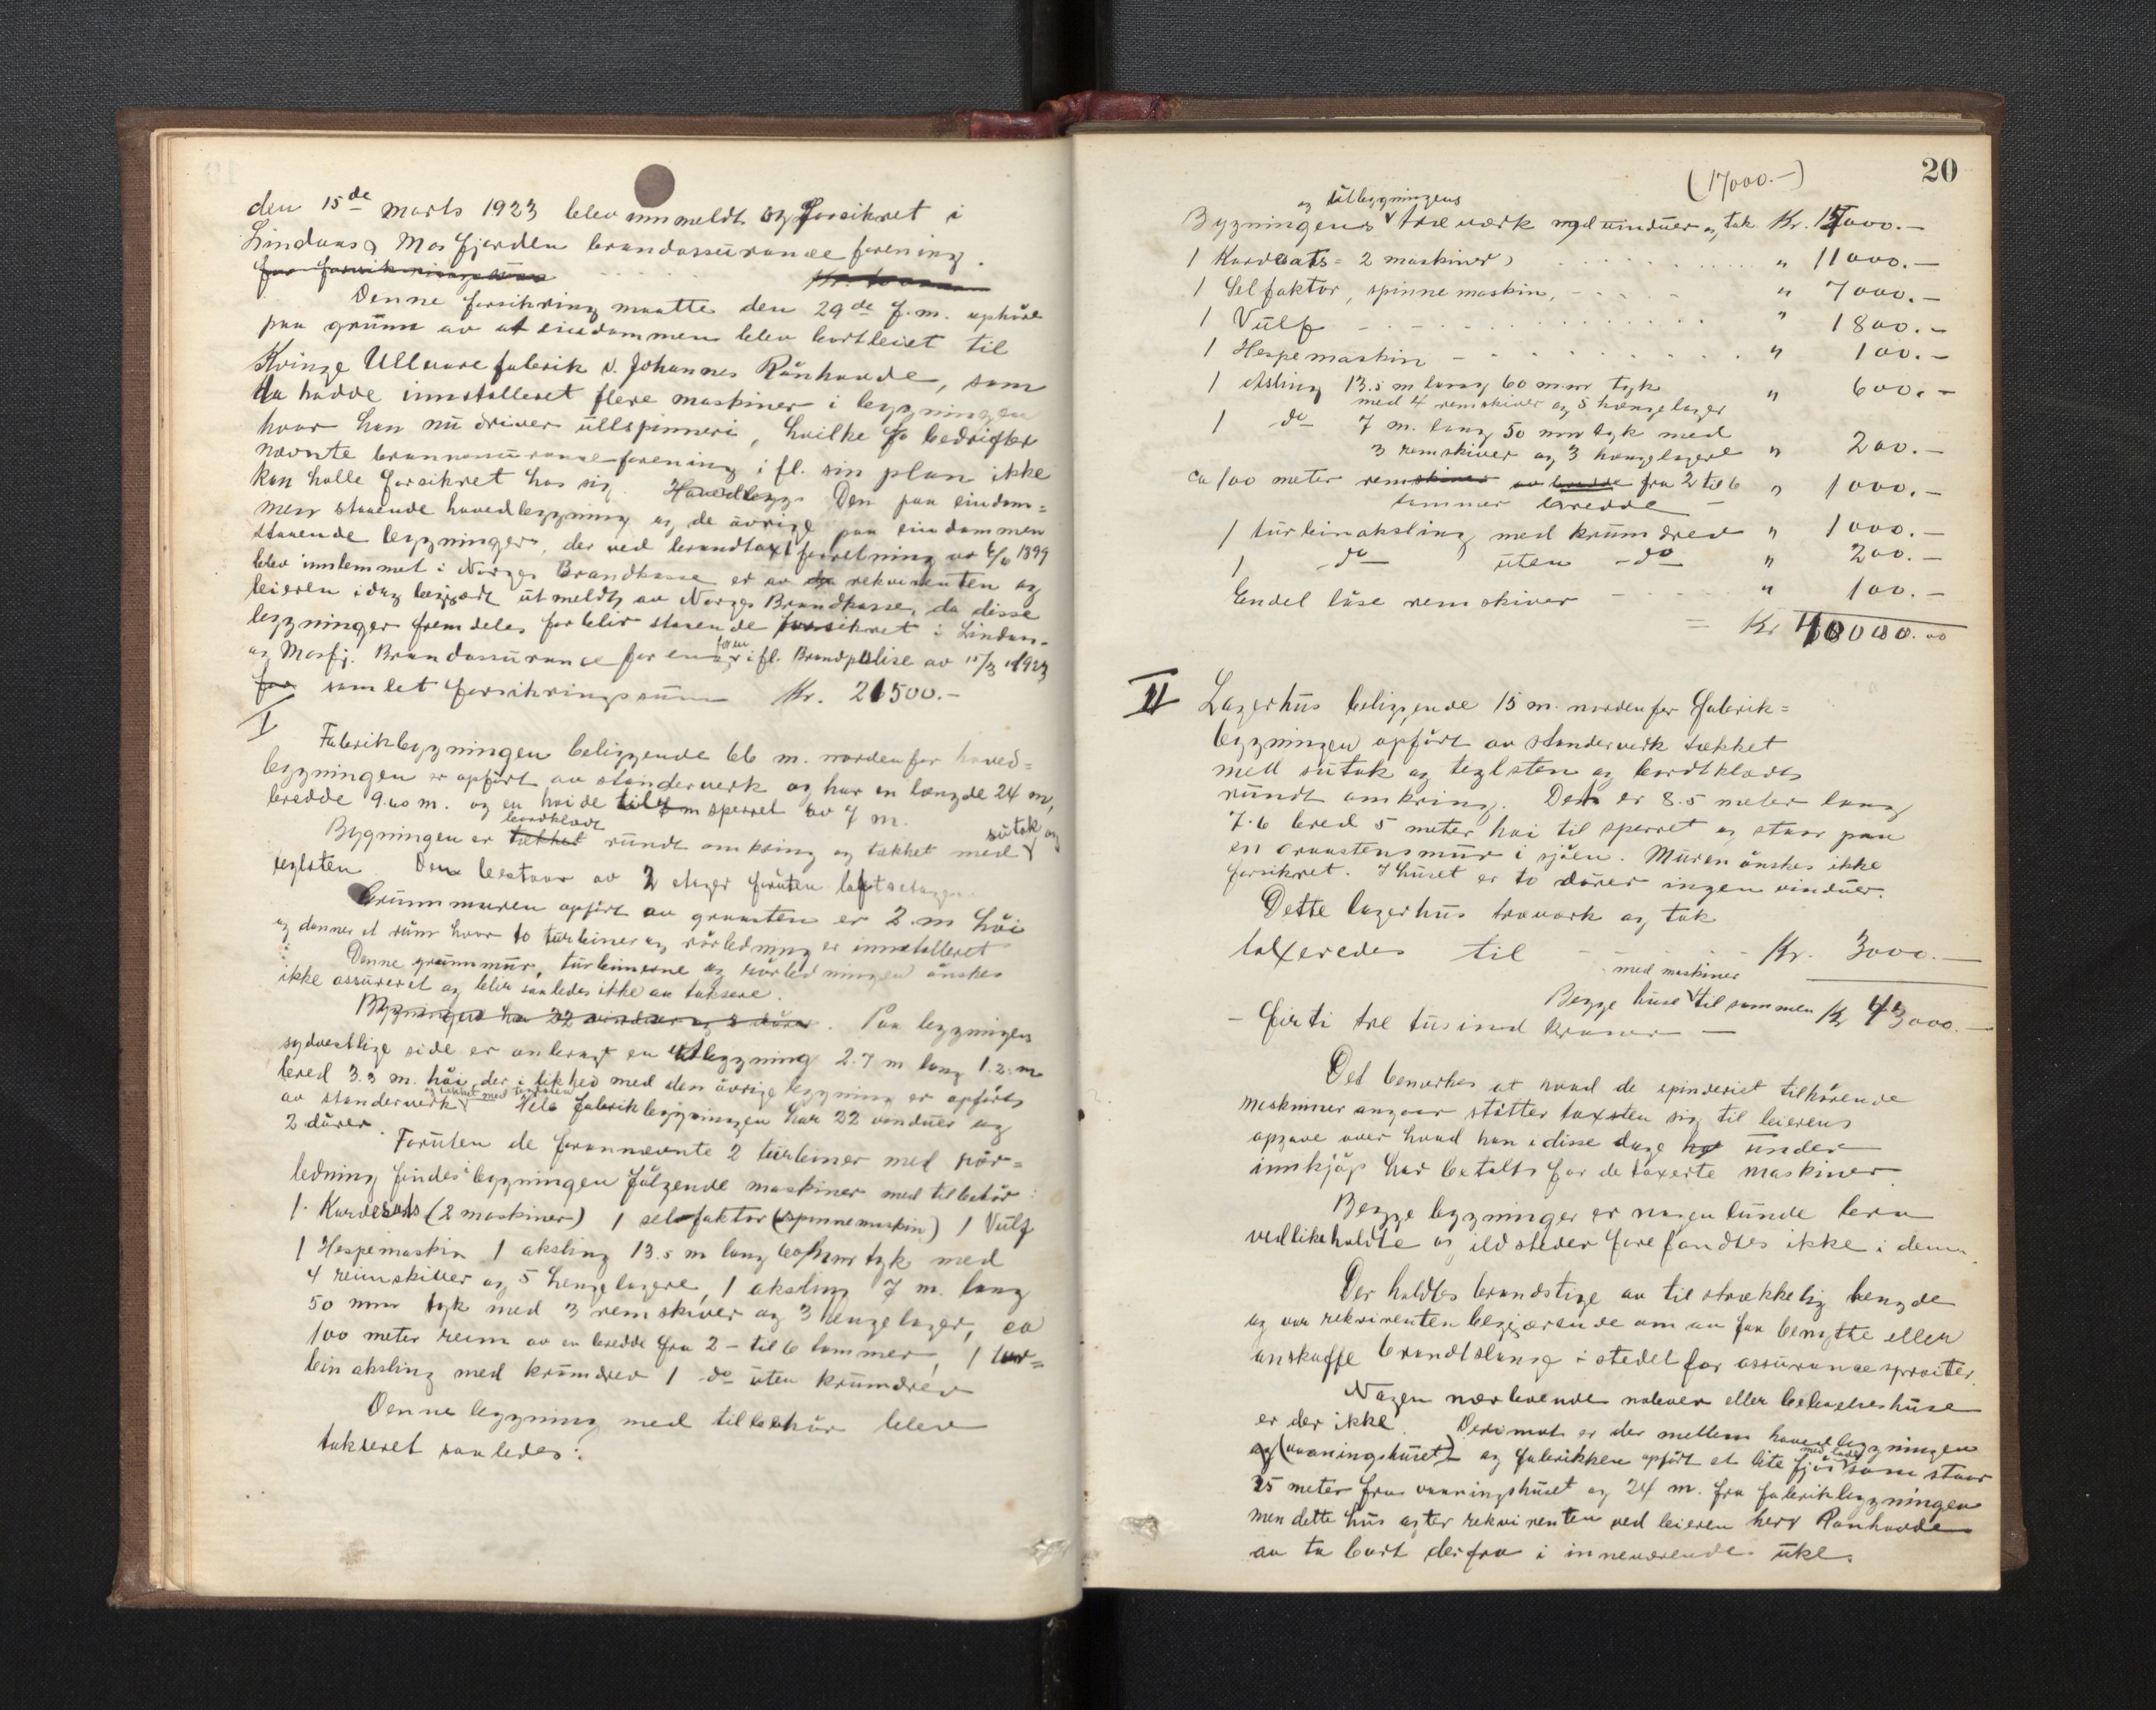 den 15de Marts 1923 blev innmeldt og forsikret i
Lindaas & Masfjorden brandassurance forening.
for forsikringssum Kr.
Denne forsikring maatte den 29de f.m. ophøre
paa grunn av at eiendommen blev bortleiet til
Kvinge Uldvarefabrik v. Johannes Rånhovde, som
da hadde innstalleret flere maskiner i bygningen
hvor han nu driver ullspinneri, hvilke bedrifter
nævnte brannassuranceforening i fl. sin plan ikke
kan holle forsikret hos sig. Den paa eindom=
men staaende hovedbygning og de øvrige paa eindommen
staaende bygninger, der ved brandtaxtforretning av 6/6 1899
blev innlemmet i Norges Brandkasse er av rekvirenten og
leieren idag begjært utmeldt av Norges Brandkasse, da disse
bygninger fremdeles forblir staaende forsikret i Lindaas-
og Masfj. Brandassurance forening i fl. Brandpolise av 15/3 1923
for samlet forsikringssum Kr. 21500.-
I
Fabrikbygningen beliggende 66 m. nordenfor hoved=
bygningen er opført av standerverk og har en længde 24 m,
bredde 9.60 m. og en høide til sperret av 7 m.
bordklædt sutak og
Bygningen er tækket rundt omkring og tækket med
teglsten. Den bestaar av 2 etager foruten loftsetagen.
Grunnmuren opført av graasten er 2.m høi
og danner et rum hvor to turbiner og rørledning er innstalleret
Denne grunnmur, turbinerne og rørledningen ønskes
ikke assureret og blir saaledes ikke au taksere.
Bygningen har 22 vinduer og 2 dører. Paa bygningens
sydvestlige side er anbragt en utbygning 2.7 m lang 1.2. m
bred 3.3 m. høi, der i likhed med den øvrige bygning er opført
og tækket med teglsten
av standerverk. Hele fabrikbygningen har 22 vinduer og
2 dører. Foruten de forannævnte 2 turbiner med rør=
ledning findes i bygningen følgende maskiner med tilbehør:
1. Kardesats (2 maskiner) 1 selfaktor (spinnemaskin) 1 Vulf
1 Hespemaskin 1 aksling 13.5 m lang 60 mm tyk med
4 reimskiver og 5 hengelagere, 1 aksling 7 m. lang
50 mm tyk med 3 remskiver og 3 hengelager, ca
100 meter reim av en bredde fra 2 - til 6 tommer, 1 tur=
bin aksling med krumdrev 1 do uten krumdrev
Denne bygning med tilbehør blev
takseret saaledes:
20
(17000.-)
og utbygningens
Bygningens træværk med vinduer og tak Kr. 17000.-
1 Kardesats = 2 maskiner) " 11000.-
1 Selfaktor, spinnemaskin, " 7000.-
1 Vulf " 1800.-
1 Hespemaskin " 100.-
1 Aksling 13.5 m lang 60 m.m tyk " 600.-
med 4 remskiver og 5 hængelager
1 do 7 m. lang 50 mm tyk med
3 remskiver og 3 hænglagere " 200.-
ca 100 meter remskiver av bredde fra 2 til 6 " 1000.-
tommer bredde -
1 turbinaksling med krumdrev " 1000.-
1 do uten do " 200.-
Endel løse remskiver " 100.-
= Kr 40000.00
II Lagerhus beliggende 15 m. nordenfor fabrik=
bygningen opført av standerverk tækket
med sutak og teglsten og bordklædt
rundt omkring. Det er 8.5 meter lang
7.6 bred 5 meter høi til sperret og staar paa
en graastensmur i sjøen. Muren ønskes ikke
forsikret. I huset er to dører ingen vinduer.
Dette lagerhus træverk og tak
taxeredes til Kr. 3000.-
med maskiner
Begge huse til sammen Kr 43000.-
- Førti tre tusind kroner -
Det bemerkes at hvad de spinderiet tilhørende
maskiner angaar støtter taxten sig til leierens
opgave over hvad han i disse dage under
innkjøp har betalt for de taxerte maskiner.
Begge bygninger er nogenlunde bra
vedlikeholdte og ildsteder forefandtes ikke i dem.
Der holdtes brandstige av tilstrækkelig længde
og var rekvirenten begjærende om au faa benytte eller
anskaffe brandtslange i stedet for assurancesprøiter.
Nogen nærboende naboer eller beboelseshuse
er der ikke. Derimot er der mellem hovedbygningen
med lade
og (vaaningshuset) og fabrikken opført et lite fjøs som staar
25 meter fra vaaningshuset og 24 m. fra fabrikbygningen
men dette hus agter rekvirenten ved leieren herr Rånhovde
au ta bort derfra i inneværende uke.